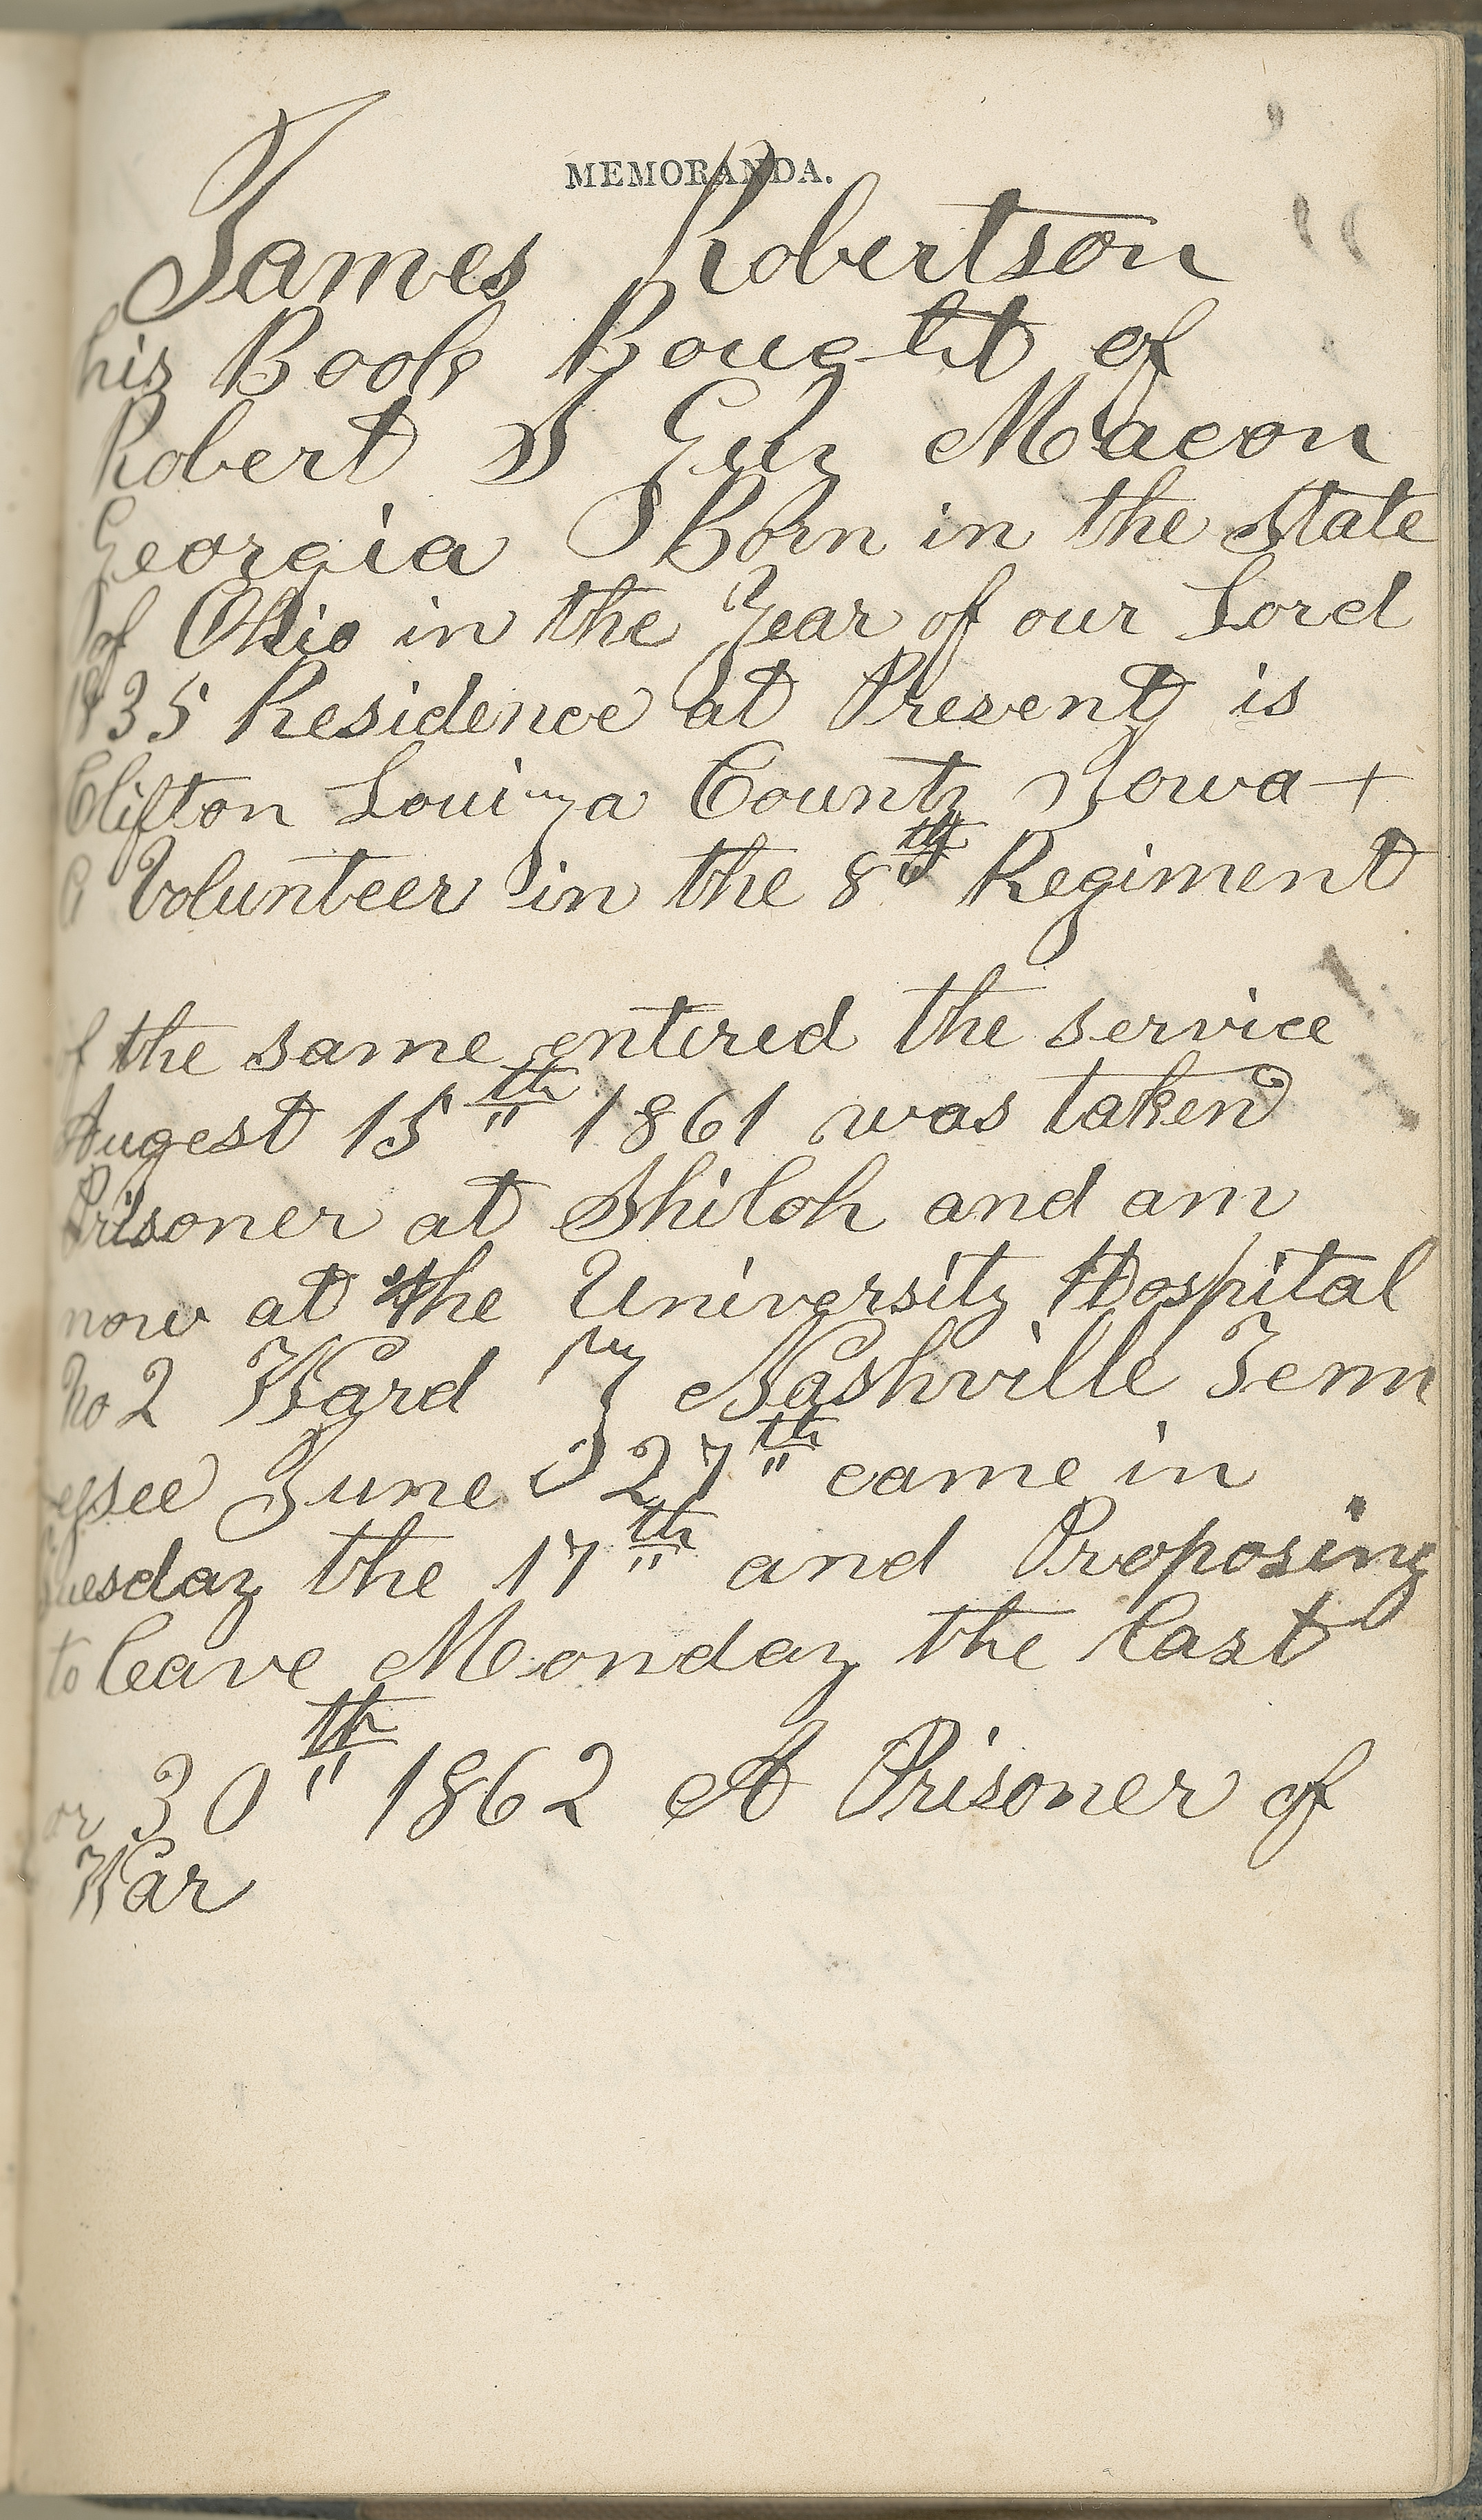 MEMORANDA.
James Robertson
his Book Bought of
Robert S Guy Macon
Georgia Born in the State
of Ohio in the Year of our Lord
1835 Residence at Present is
Clifton Louiza County Iowa +
a Volunteer in the 8th Regiment
of the same entered the service
Augest 15th 1861 was taken
Prisoner at Shiloh and am
now at the University Hospital
No 2 Ward 7 Nashville Tenn
essee June 27th came in
Tuesday the 17th and Proposing
to leave Monday the last
or 30th 1862 A Prisoner of
War